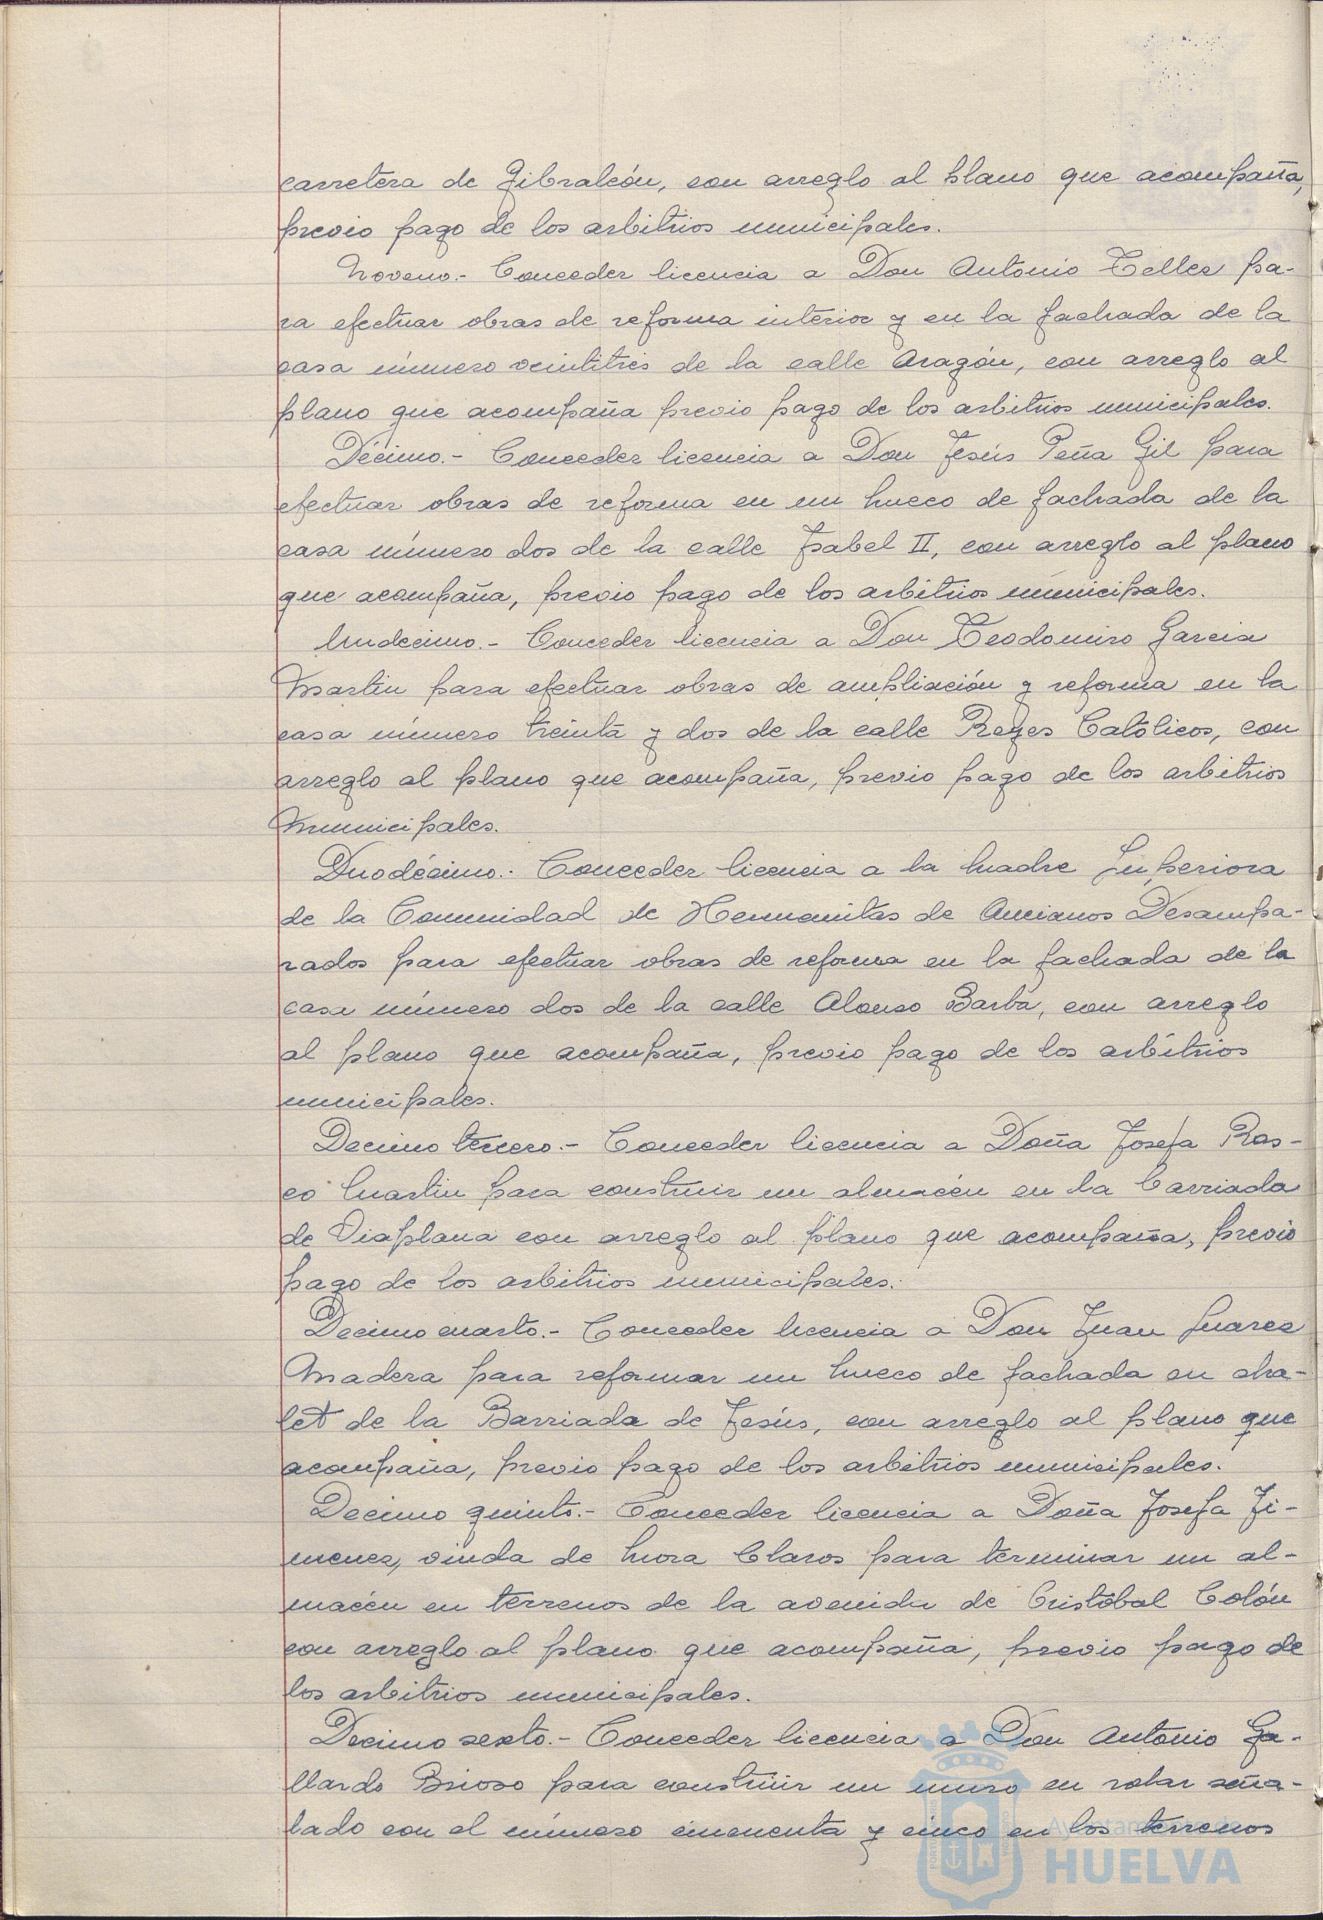 carretera de Gibraleón, con arreglo al plano que acompaña,
previo pago de los arbitrios municipales.
Noveno.- Conceder licencia a Don Antonio Telles pa-
ra efectuar obras de reforma interior y en la fachada de la
casa número veintitrés de la calle Aragón, con arreglo al
plano que acompaña previo pago de los arbitrios municipales.
Décimo.- Conceder licencia a Don Jesús Peña Gil para
efectuar obras de reforma en un hueco de fachada de la
casa número dos de la calle Isabel II, con arreglo al plano
que acompaña, previo pago de los arbitrios municipales.
Undecimo.- Conceder licencia a Don Teodomiro Garcia
Martin para efectuar obras de ampliación y reforma en la
casa número treinta y dos de la calle Reyes Católicos, con
arreglo al plano que acompaña, previo pago de los arbitrios
municipales.
Duodécimo.- Conceder licencia a la Madre Superiora
de la Comunidad de Hermanitas de Ancianos Desampa-
rados para efectuar obras de reforma en la fachada de la
casa número dos de la calle Alonso Barba, con arreglo
al plano que acompaña, previo pago de los arbitrios
municipales.
Decimo tercero.- Conceder licencia a Doña Josefa Ras-
co Martin para construir un almacén en la barriada
de Viaplana con arreglo al plano que acompaña, previo
pago de los arbitrios municipales.
Decimo cuarto.- Conceder licencia a Don Juan Suarez
Madera para reformar un hueco de fachada en cha-
let de la Barriada de Jesús, con arreglo al plano que
acompaña, previo pago de los arbitrios municipales.
Decimo quinto.- Conceder licencia a Doña Josefa Ji-
menez, viuda de Mora Claros para terminar un al-
macén en terrenos de la avenida de Cristóbal Colón
con arreglo al plano que acompaña, previo pago de
los arbitrios municipales.
Decimo sexto.- Conceder licencia a Don Antonio Ga-
llardo Brioso para construir un muro en solar seña-
lado con el número cincuenta y cinco en los terrenos
Ayuntamiento de
HUELVA